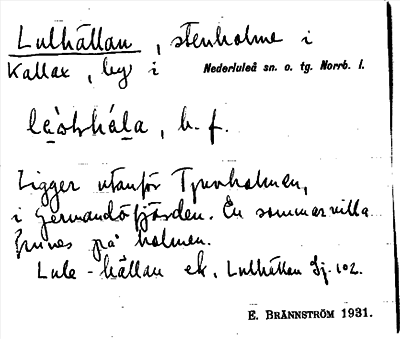 Lulhällan, stenholme i
Kallax, by i Nederluleå sn. o. tg. Norrb. l.
b. f.
Ligger utanför Tjuvholmen,
i Germandöfjärden. En sommarvilla
finnes på holmen.
Lule-hällan ek. Lulhällan Sj. 102.
E. BRÄNNSTRÖM 1931.